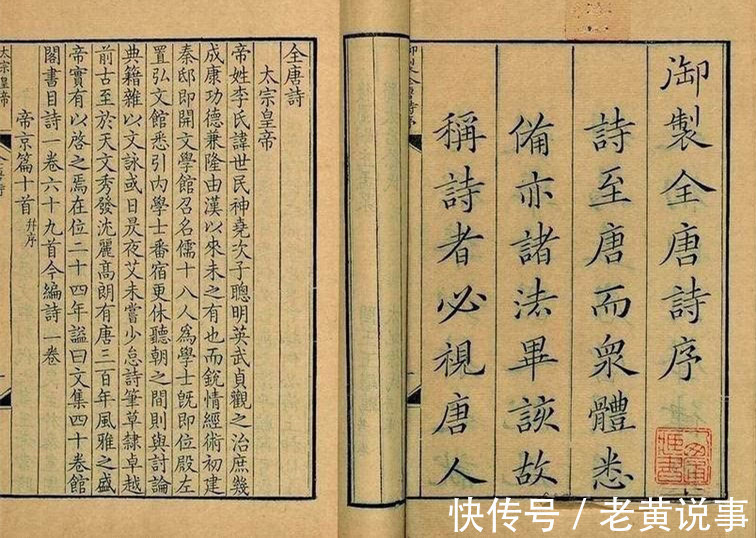 御製全唐詩序
詩至唐而衆體悉
備亦諸法畢該故
稱詩者必視唐人
全唐詩
太宗皇帝
帝姓李氏諱世民神堯次子聰明英武貞觀之治庶幾
成康功德兼隆由漢以來未之有也而銳情經術初建
秦邸即開文學館召名儒十八人爲學士旣即位殿左
置弘文館悉引內學士番宿更休聽朝之間則與討論
典籍雜以文詠或日昃夜艾未嘗少怠詩筆草隸卓越
前古至於天文秀發沈麗高朗有唐三百年風雅之盛
帝實有以啓之焉在位二十四年諡曰文集四十卷館
閣書目詩一卷六十九首今編詩一卷
帝京篇十首 幷序
太宗皇帝
快传号 / 老黄说事